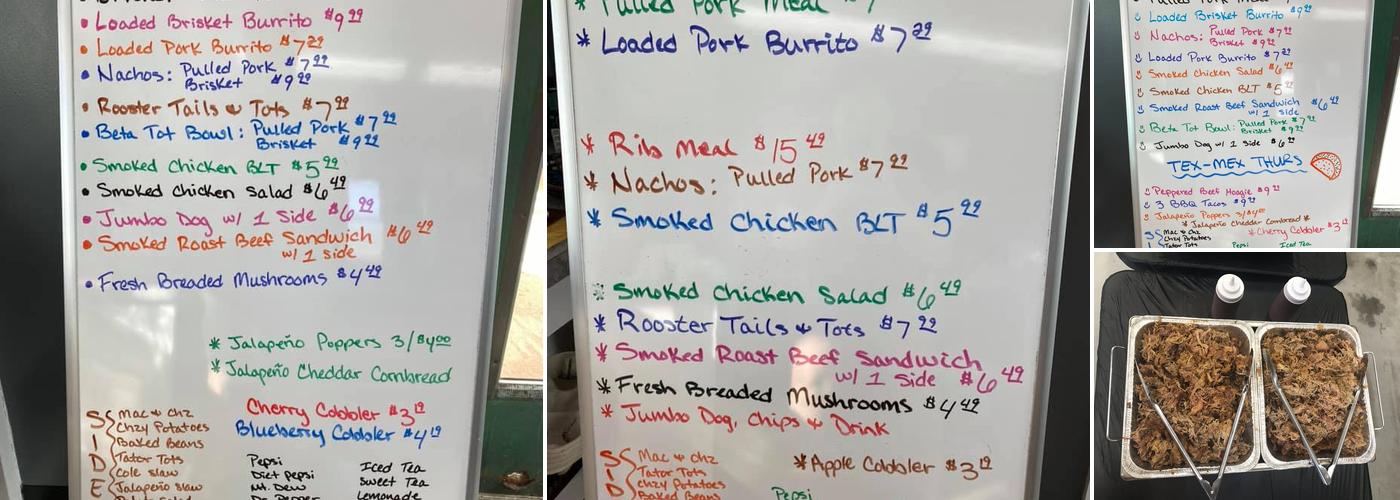 • Loaded Brisket Burrito $9.99
• Loaded Pork Burrito $7.29
• Nachos: Pulled Pork $7.99
Brisket $9.99
• Rooster Tails & Tots $7.99
• Beta Tot Bowl: Pulled Pork $7.99
Brisket $9.99
• Smoked Chicken BLT $5.99
• Smoked Chicken Salad $6.49
• Jumbo Dog w/ 1 Side $6.99
• Smoked Roast Beef Sandwich $6.49
w/ 1 side
• Fresh Breaded Mushrooms $4.49
* Jalapeño Poppers 3/$4.00
* Jalapeño Cheddar Cornbread
Cherry Cobbler $3.19
Blueberry Cobbler $4.19
SIDE
Mac & Chz
Chzy Potatoes
Baked Beans
Tater Tots
Cole Slaw
Jalapeño Slaw
Pepsi
Diet Pepsi
Mt. Dew
Dr. Pepper
Iced Tea
Sweet Tea
Lemonade
Pulled Pork Meal $7
* Loaded Pork Burrito $7.29
* Rib Meal $15.49
* Nachos: Pulled Pork $7.99
* Smoked Chicken BLT $5.99
* Smoked Chicken Salad $6.49
* Rooster Tails & Tots $7.99
* Smoked Roast Beef Sandwich
w/ 1 side $6.49
* Fresh Breaded Mushrooms $4.49
* Jumbo Dog, Chips & Drink
SID
Mac & Chz
Tator Tots
Chzy Potatoes
Baked Beans
* Apple Cobbler $3.19
Pepsi
Pulled Pork Meal
Loaded Brisket Burrito $9.99
Nachos: Pulled Pork $7.99
Brisket $9.99
Loaded Pork Burrito $7.29
Smoked Chicken Salad $6.49
Smoked Chicken BLT $5.99
Smoked Roast Beef Sandwich $6.49
w/ 1 side
Beta Tot Bowl: Pulled Pork $7.99
Brisket $9.99
Jumbo Dog w/ 1 Side $6.99
TEX-MEX THURS
Peppered Beef Hoagie $9.99
3 BBQ Tacos $9.99
Jalapeño Poppers 3/$4.00
* Jalapeño Cheddar Cornbread *
Mac & Chz
Chzy Potatoes
Tater Tots
* Cherry Cobbler $3.19
Pepsi
Iced Tea